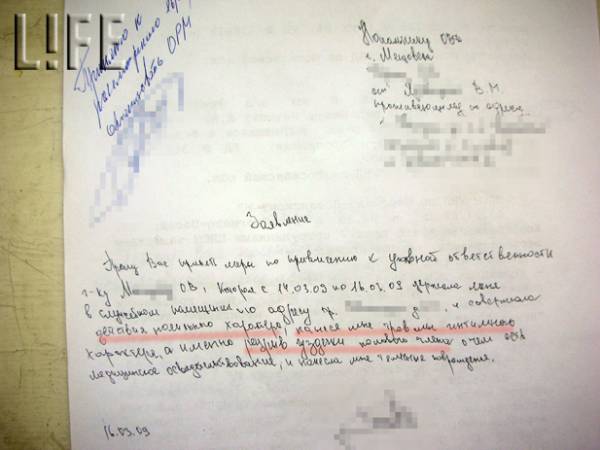 L!FE
Принято к
рассмотрению
организовать ОРМ
Начальнику ОВД
г. Мещовска
от М В.М.
проживающего по адресу
Заявление
Прошу Вас принять меры по привлечению к уголовной ответственности
г-ку М О.В, которая с 14.03.09 по 16.03.09 держала меня
в служебном помещении по адресу и совершала
действия полового характера, нанеся мне травмы интимного
характера, а именно разрыв уздечки полового члена о чем есть
медицинское освидетельствование, и нанесла мне телесные повреждения.
16.03.09